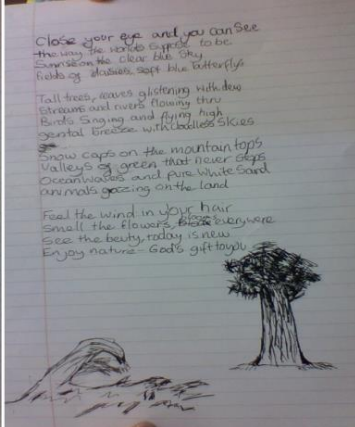 Close your eye and you can see
the way the world's suppose to be
Sunrise on the clear blue sky
fields of daisies, soft blue butterflys
Tall trees, leaves glistening with dew
Streams and rivers flowing thru
Birds singing and flying high
gental breeze with cloudless skies
Snow caps on the mountain tops
Valleys of green that never stops
Ocean waves and pure white sand
animals grazing on the land
Feel the wind in your hair
Smell the flowers, everywere
See the beuty, today is new
Enjoy nature - God's gift to you